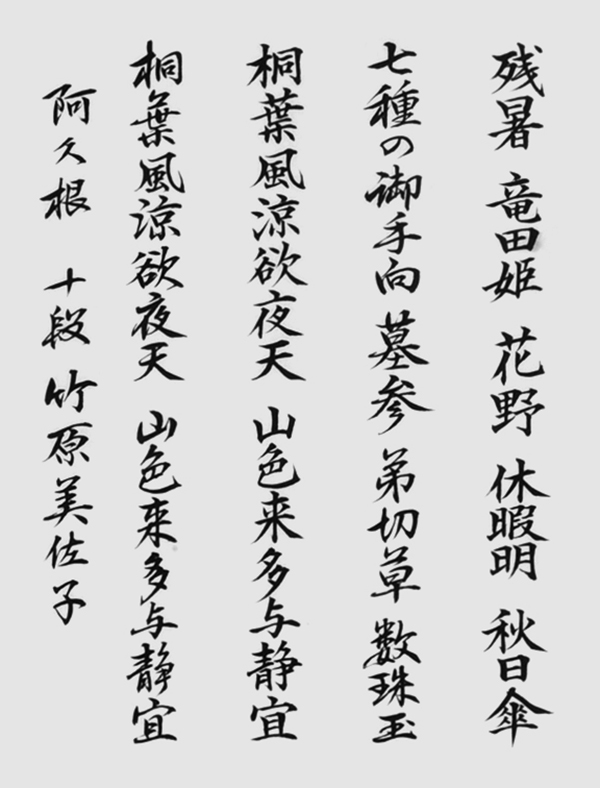 残暑 竜田姫 花野 休暇明 秋日傘
七種の御手向 墓参 弟切草 数珠玉
桐葉風涼欲夜天 山色来多与静宜
桐葉風涼欲夜天 山色来多与静宜
阿久根 十段 竹原美佐子